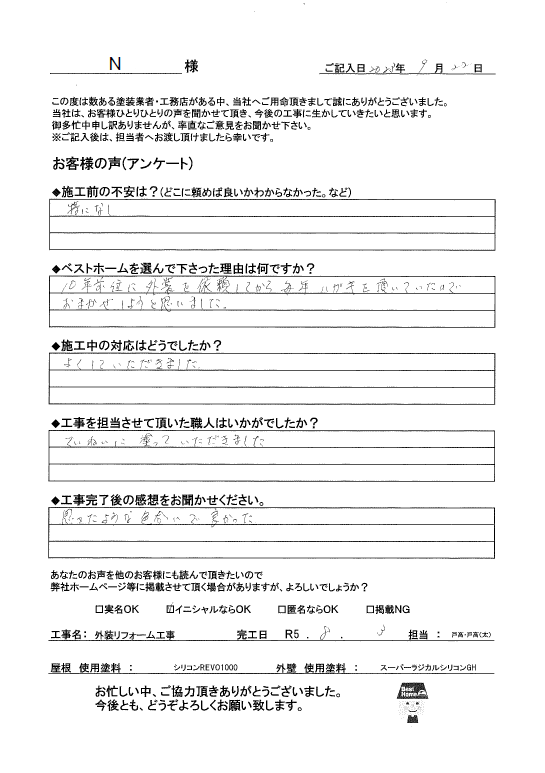 N 様
ご記入日 2023年 9月 22日
この度は数ある塗装業者・工務店がある中、当社へご用命頂きまして誠にありがとうございました。
当社は、お客様ひとりひとりの声を聞かせて頂き、今後の工事に生かしていきたいと思います。
御多忙中申し訳ありませんが、率直なご意見をお聞かせ下さい。
※ご記入後は、担当者へお渡し頂けましたら幸いです。
お客様の声(アンケート)
◆施工前の不安は？(どこに頼めば良いかわからなかった。など)
特になし
◆ベストホームを選んで下さった理由は何ですか？
10年前位に外装を依頼してから毎年ハガキを頂いていたので
おまかせしようと思いました。
◆施工中の対応はどうでしたか？
よくしていただきました
◆工事を担当させて頂いた職人はいかがでしたか？
ていねいに塗っていただきました
◆工事完了後の感想をお聞かせください。
思ったような色合いで良かった
あなたのお声を他のお客様にも読んで頂きたいので
弊社ホームページ等に掲載させて頂く場合がありますが、よろしいでしょうか？
□実名OK ☑イニシャルならOK □匿名ならOK □掲載NG
工事名： 外装リフォーム工事 完工日 R5 . 8 . 3 担当： 戸高・戸高(太)
屋根 使用塗料 ： シリコンREVO1000 外壁 使用塗料 ： スーパーラジカルシリコンGH
お忙しい中、ご協力頂きありがとうございました。
今後とも、どうぞよろしくお願い致します。
Best Home